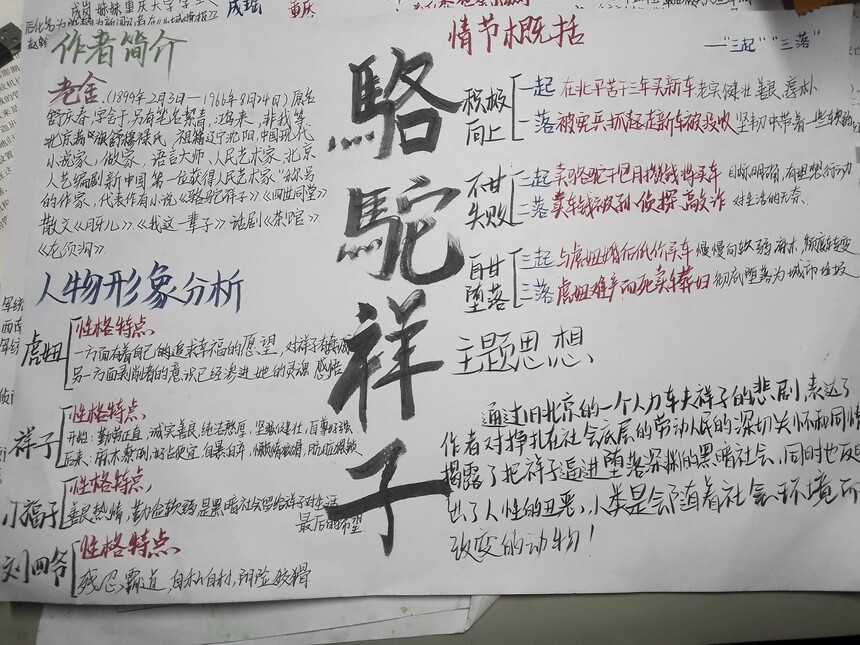 成岗 妹妹重庆大学学生
成瑶
重庆
作者简介
老舍(1899年2月3日—1966年8月24日)原名
舒庆春,字舍予,另有笔名絜青、鸿来、非我等
北京满
祖籍辽宁沈阳,中国现代
小说家,作家,语言大师,人民艺术家,北京
人艺编剧新中国第一位获得人民艺术家“称号
的作家,代表作有小说《骆驼祥子》《四世同堂》
散文《月牙儿》《我这一辈子》话剧《茶馆》
《龙须沟》
人物形象分析
虎妞
性格特点
一方面有着自己的追求幸福的愿望,对祥子有真诚
另一方面剥削者的意识已经渗进她的灵魂 感悟
祥子
性格特点
开始:勤劳正直,诚实善良,纯洁憨厚,坚强健壮,自尊好强
后来:麻木潦倒,好占便宜,自暴自弃,懒惰
小福子
性格特点
善良热情,勤俭软弱是黑暗社会留给祥子对生活
最后的希望
刘四爷
性格特点
残忍霸道,自私自利,阴险狡猾
駱駝祥子
情节概括
—“三起”“三落”
积极向上
一起 在北平苦干三年买新车 老实健壮善良,淳朴
一落 被宪兵抓起走新车被没收 坚韧中带着一些
不甘失败
二起 卖骆驼干包月攒钱将买车 目标明确,有理想行动
二落 卖车钱被孙侦探高敲诈 对生活的无奈
自甘堕落
三起 与虎妞婚后低价买车 慢慢向软弱麻木,彻底转变
三落 虎妞难产而死卖车葬妇 彻底堕落为城市垃圾
主题思想
通过旧北京的一个人力车夫祥子的悲剧,表达了
作者对挣扎在社会底层的劳动人民的深切关怀和同情
揭露了把祥子逼进堕落深渊的黑暗社会,同时也反映
出了人性的丑恶,人类是会随着社会环境而
改变的动物!